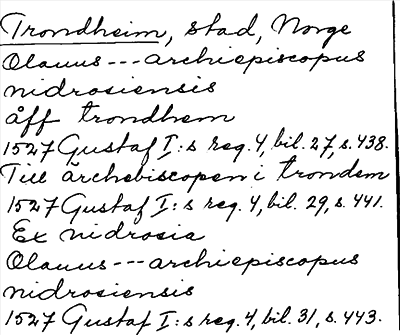 Trondheim, stad, Norge
Olauus---archiepiscopus
nidrosiensis
åff trondhem
1527 Gustaf I:s reg. 4, bil. 27, s. 438.
Till ärchebiscopen i trondem
1527 Gustaf I:s reg. 4, bil. 29, s. 441.
Ex nidrosia
Olauus---archiepiscopus
nidrosiensis
1527 Gustaf I:s reg. 4, bil. 31, s. 443.